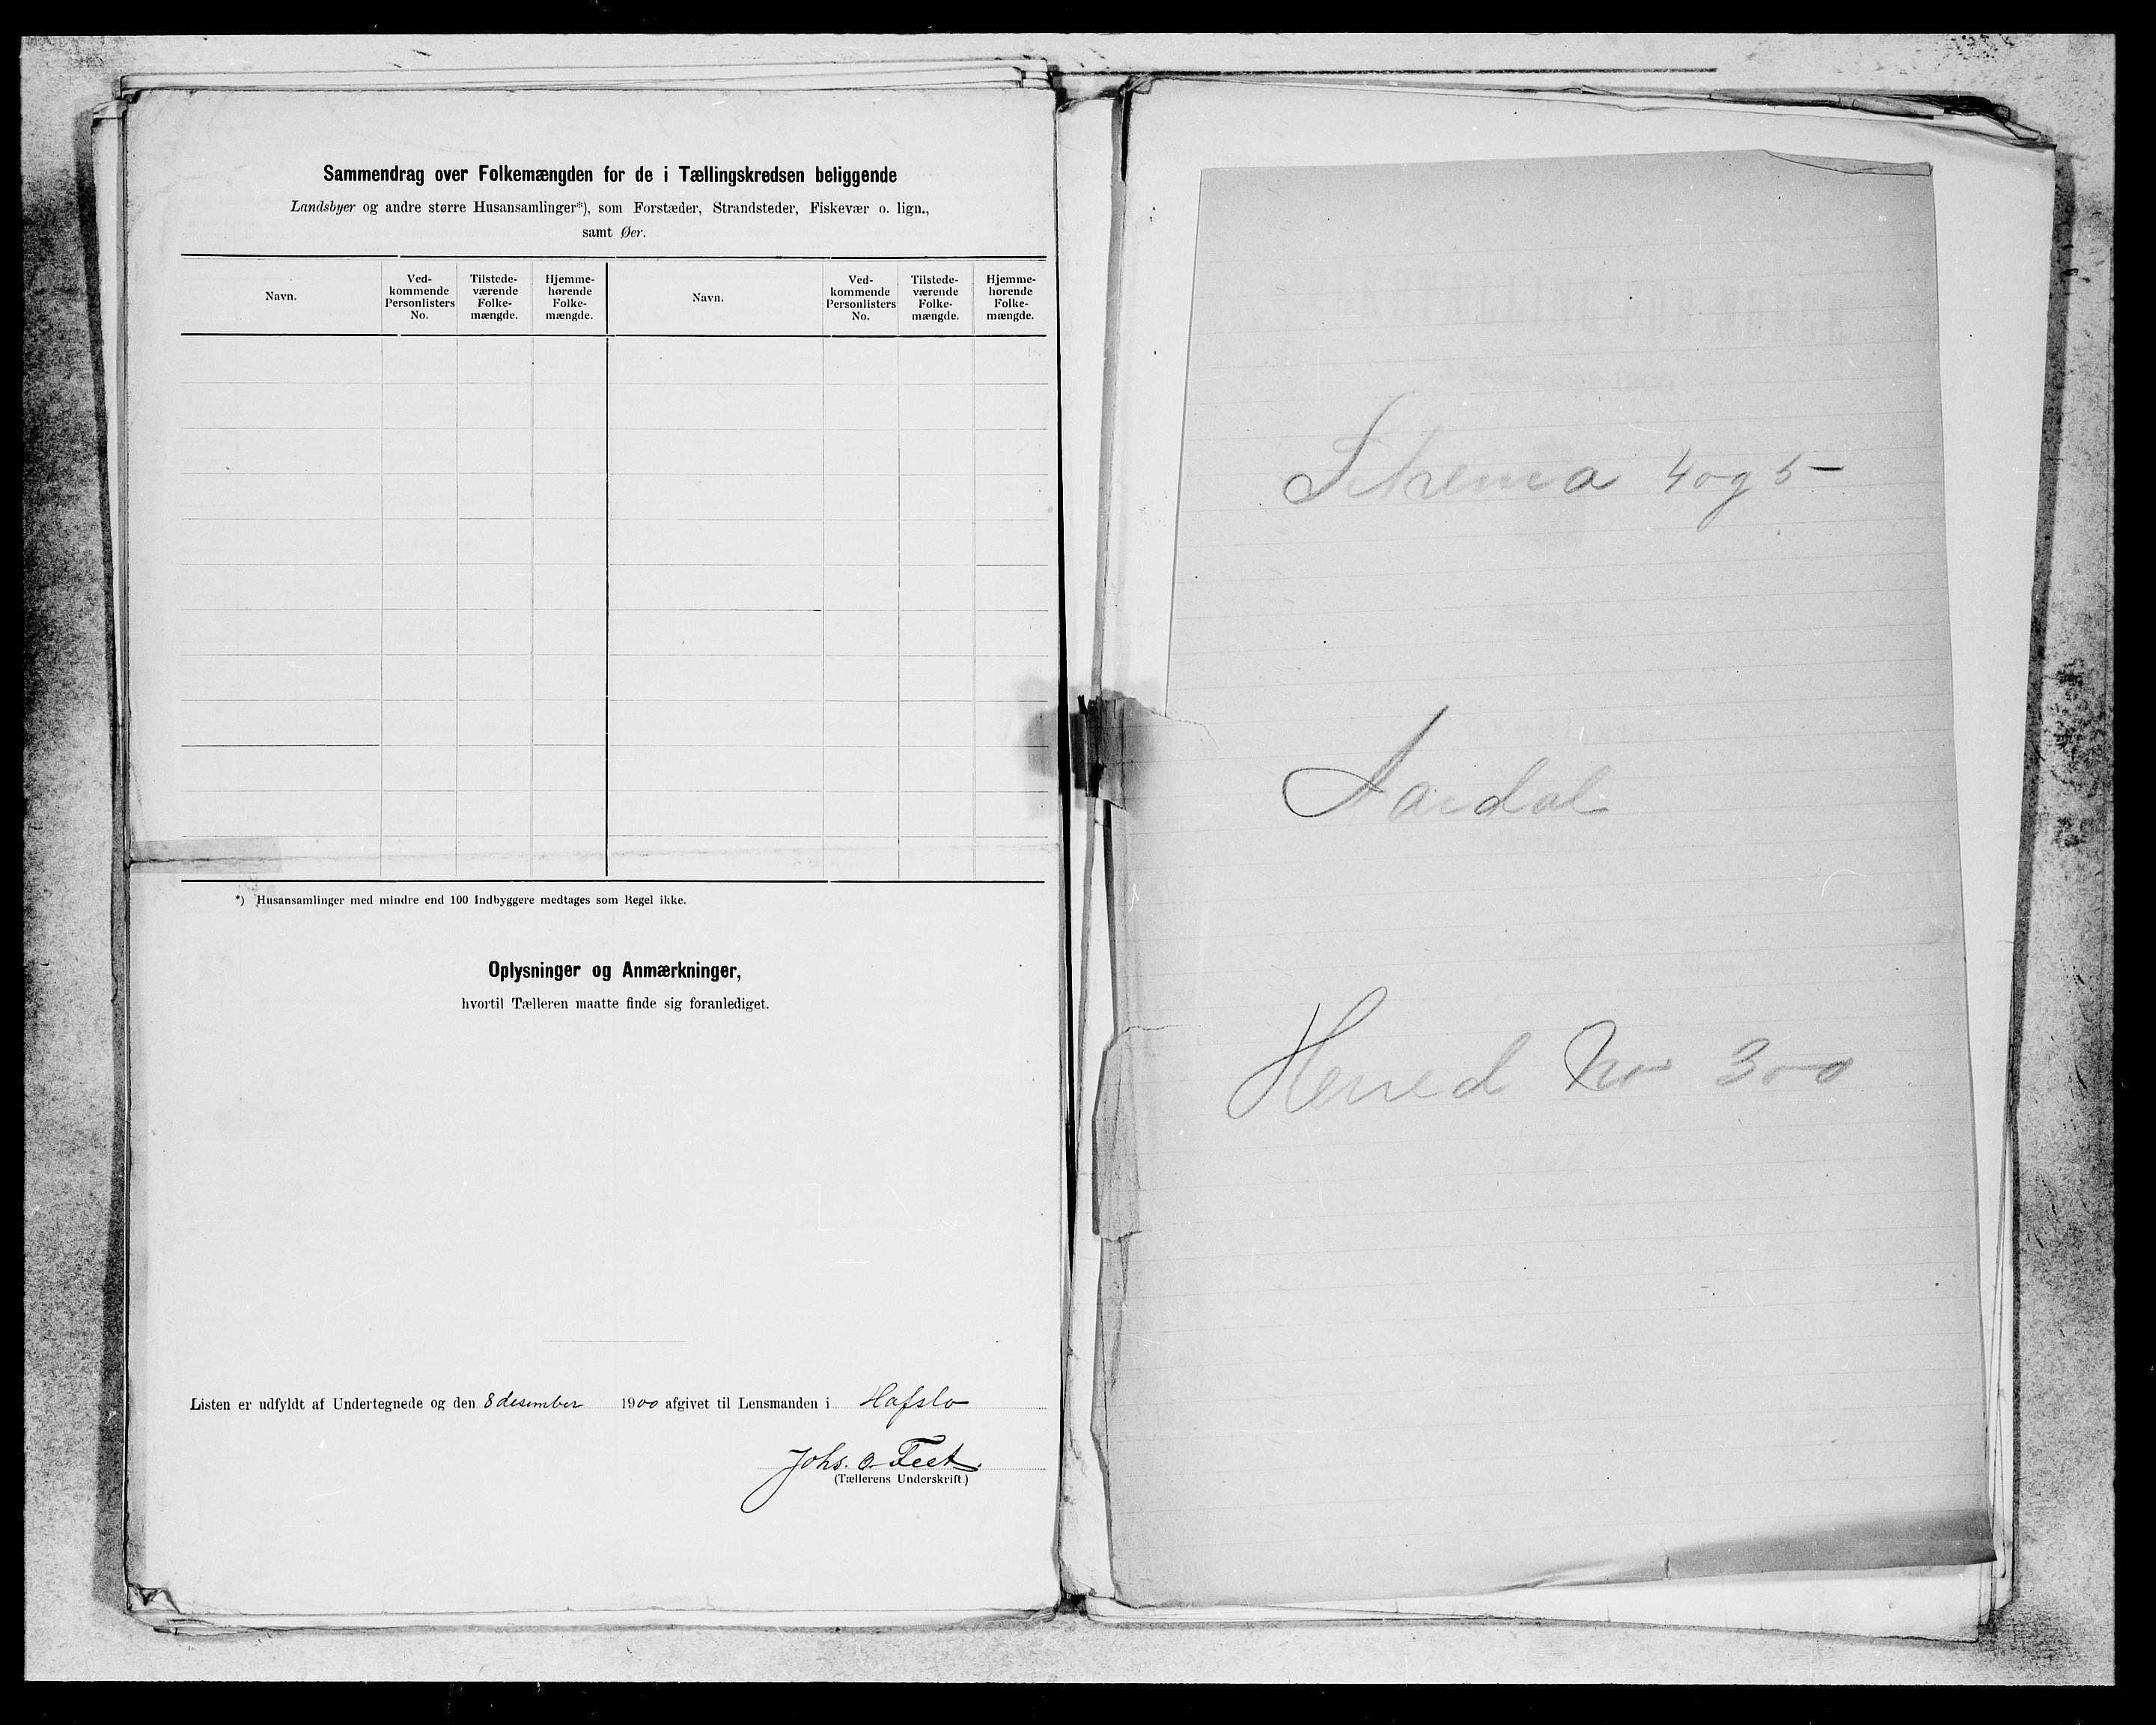 Sammendrag over Folkemængden for de i Tællingskredsen beliggende
Landsbyer og andre større Husansamlinger*), som Forstæder, Strandsteder, Fiskevær o. lign.,
samt Øer.
Navn.
Ved-
kommende
Personlisters
No.
Tilstede-
værende
Folke-
mængde.
Hjemme-
hørende
Folke-
mængde.
Navn.
Ved-
kommende
Personlisters
No.
Tilstede-
værende
Folke-
mængde.
Hjemme-
hørende
Folke-
mængde.
*) Husansamlinger med mindre end 100 Indbyggere medtages som Regel ikke.
Oplysninger og Anmærkninger,
hvortil Tælleren maatte finde sig foranlediget.
Listen er udfyldt af Undertegnede og den 8 desember 1900 afgivet til Lensmanden i Hafslo
Johs. O. Feet.
(Tællerens Underskrift.)
3 December 1900
Schema 4 og 5
Aardal
Herred No 300